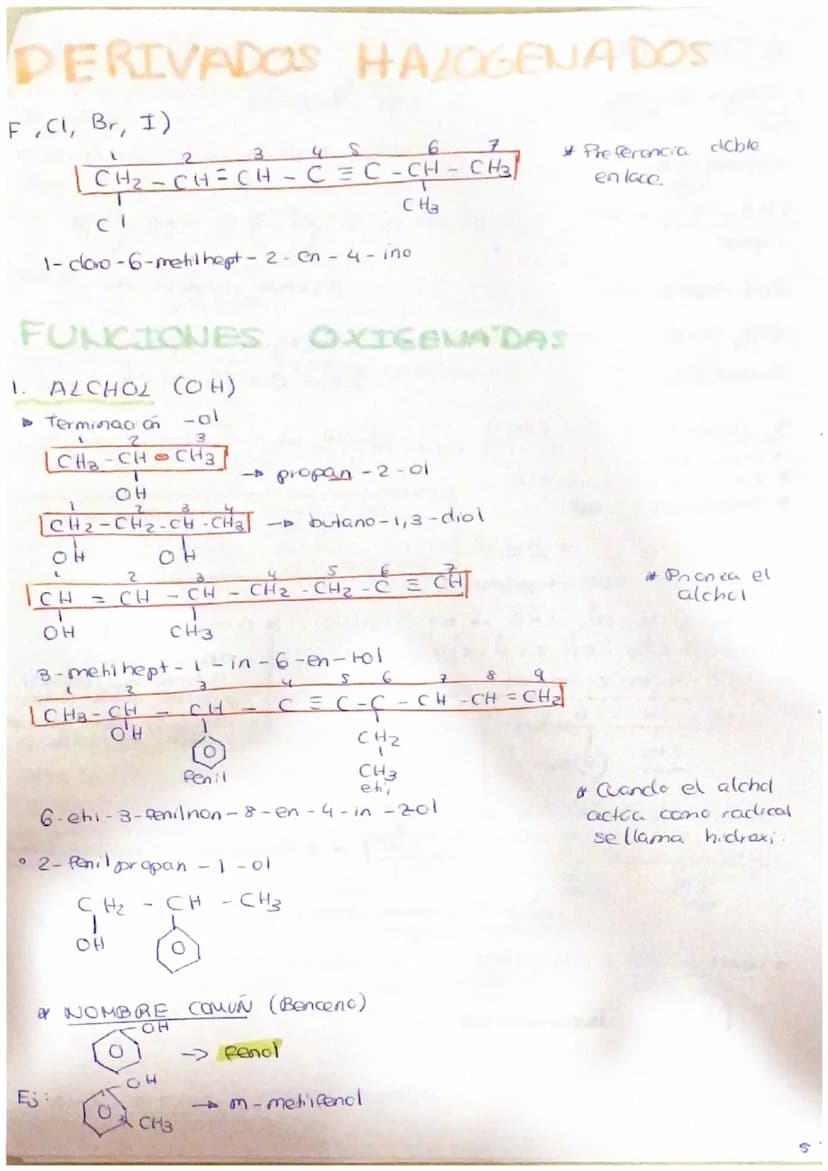 DERIVADOS HALOGENADOS
F, Cl, Br, I)
1 2 3 4 5 6 7
CH2 - CH = CH - C ≡ C - CH - CH3
Cl CH3
* Preferencia doble
enlace.
1-cloro-6-metilhept-2-en-4-ino
FUNCIONES OXIGENADAS
1. ALCHOL (OH)
Terminación -ol
1 2 3
CH3 - CH - CH3 → propan-2-ol
OH
1 2 3 4
CH2 - CH2 - CH - CH3 → butano-1,3-diol
OH OH
1 2 3 4 5 6 7
CH = CH - CH - CH2 - CH2 - C ≡ CH
OH CH3
* Prioriza el
alchol
3-metilhept-1-in-6-en-1ol
1 2 3 4 5 6 7 8 9
CH3 - CH - CH - C ≡ C - C - CH - CH = CH2
OH CH2
fenil CH3
etil
6-etil-3-fenilnon-8-en-4-in-2ol
* Cuando el alchol
actúa como radical
se llama hidroxi.
° 2-fenilpropan-1-ol
CH2 - CH - CH3
OH
* NOMBRE COMÚN (Benceno)
OH
→ fenol
Ej: OH
→ m-metilfenol
CH3
5